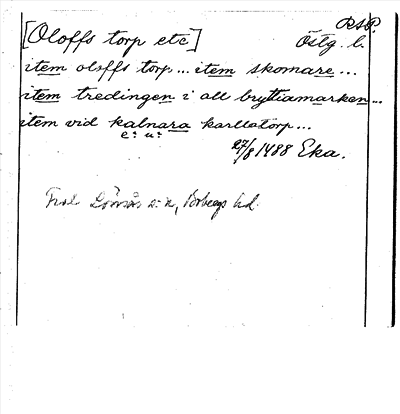 RAP.
[Oloffs torp etc] Östg. l.
item oloffs torp... item skomare...
item tredingen i all bryttiamarken...
item vid kalnara karllatorp...
e: u:
27/8 1488 Eka.
s:n, Bobergs hd.